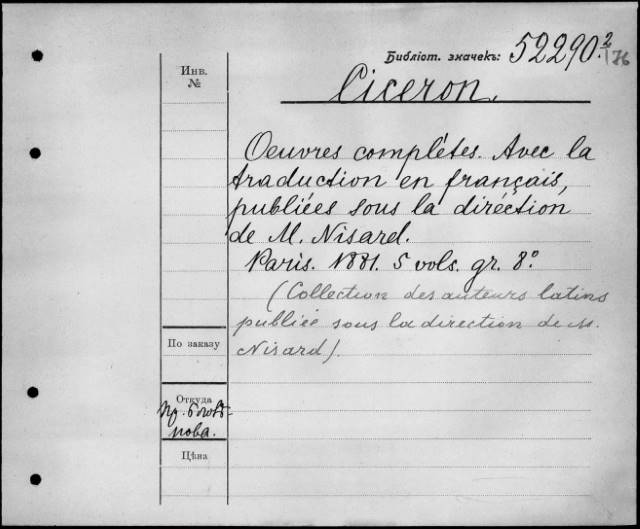 Библіот. значекъ: 52290.2/76
Инв.
№
Ciceron.
Oeuvres complètes. Avec la
traduction en français,
publiées sous la diréction
de M. Nisard.
Paris. 1881. 5 vols. gr. 8°.
(Collection des auteurs latins
publiée sous la direction de M.
Nisard).
По заказу
Откуда
нова.
Цѣна